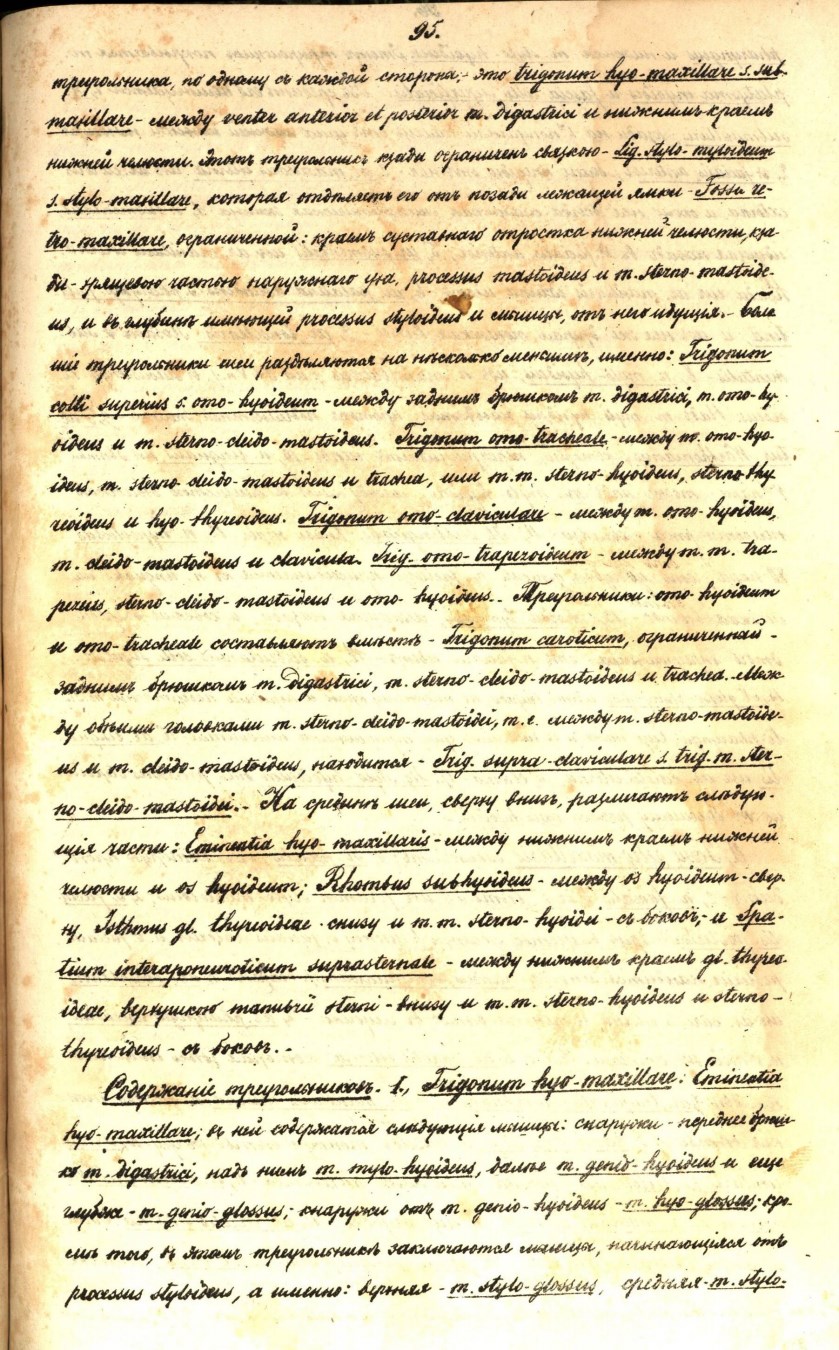 95.
треугольника, по одному съ каждой стороны,- это trigonum hyo-maxillare s. sub-
maxillare - между venter anterior et posterior m. digastrici и нижнимъ краемъ
нижней челюсти. Этотъ треугольникъ кзади ограниченъ связкою - Lig. stylo-myloideum
s. stylo-maxillare, которая отдѣляетъ его отъ позади лежащей ямки - Fossa re-
tro-maxillare, ограниченной: краемъ суставнаго отростка нижней челюсти, кза-
ди - хрящевою частью наружнаго уха, processus mastoideus и m. sterno-mastoide-
us, и въ глубинѣ имѣющей processus styloideus и мышцы, отъ него идущія. - Боль
шіе треугольники шеи раздѣляются на нѣсколько меньшихъ, именно: Trigonum
colli superius s. omo-hyoideum - между заднимъ брюшкомъ m. digastrici, m. omo-hy-
oideus и m. sterno-cleido-mastoideus. Trigonum omo-tracheale - между m. omo-hyo-
ideus, m. sterno cleido-mastoideus и trachea, или m.m. sterno-hyoideus, sterno-thy
reoideus и hyo-thyreoideus. Trigonum omo-claviculare - между m. omo-hyoideus,
m. cleido-mastoideus и clavicula. Trig. omo-trapezoideum - между m. m. tra-
pezius, sterno-cleido-mastoideus и omo-hyoideus. - Треугольники: omo-hyoideum
и omo-tracheale составляютъ вмѣстѣ - Trigonum caroticum, ограниченный -
заднимъ брюшкомъ m. digastrici, m. sterno-cleido-mastoideus и trachea. Меж-
ду обѣими головками m. sterno-cleido-mastoidei, т. е. между m. sterno-mastoide-
us и m. cleido-mastoideus, находится - Trig. supra-claviculare s. trig. m. ster-
no-cleido-mastoidei. - На срединѣ шеи, сверху внизъ, различаютъ слѣдую-
щія части: Eminentia hyo-maxillaris - между нижнимъ краемъ нижней
челюсти и os hyoideum; Rhombus subhyoideus - между os hyoideum - свер-
ху, Isthmus gl. thyreoideae - снизу и m.m. sterno-hyoidei - съ боковъ,- и Spa-
tium interaponeuroticum suprasternale - между нижнимъ краемъ gl. thyreo-
ideae, верхушкою manubrii sterni - внизу и m. m. sterno-hyoideus и sterno-
thyreoideus - съ боковъ. -
Содержаніе треугольниковъ. I., Trigonum hyo-maxillare: Eminentia
hyo-maxillare; въ ней содержатся слѣдующія мышцы: снаружи - переднее брюш-
ко m. digastrici, надъ нимъ m. mylo-hyoideus, далѣе m. genio-hyoideus и еще
глубже - m. genio-glossus,- кнаружи отъ m. genio-hyoideus - m. hyo-glossus;- кро-
мѣ того, въ этомъ треугольникѣ заключаются мышцы, начинающіяся отъ
processus styloideus, а именно: верхняя - m. stylo-glossus, средняя - m. stylo-